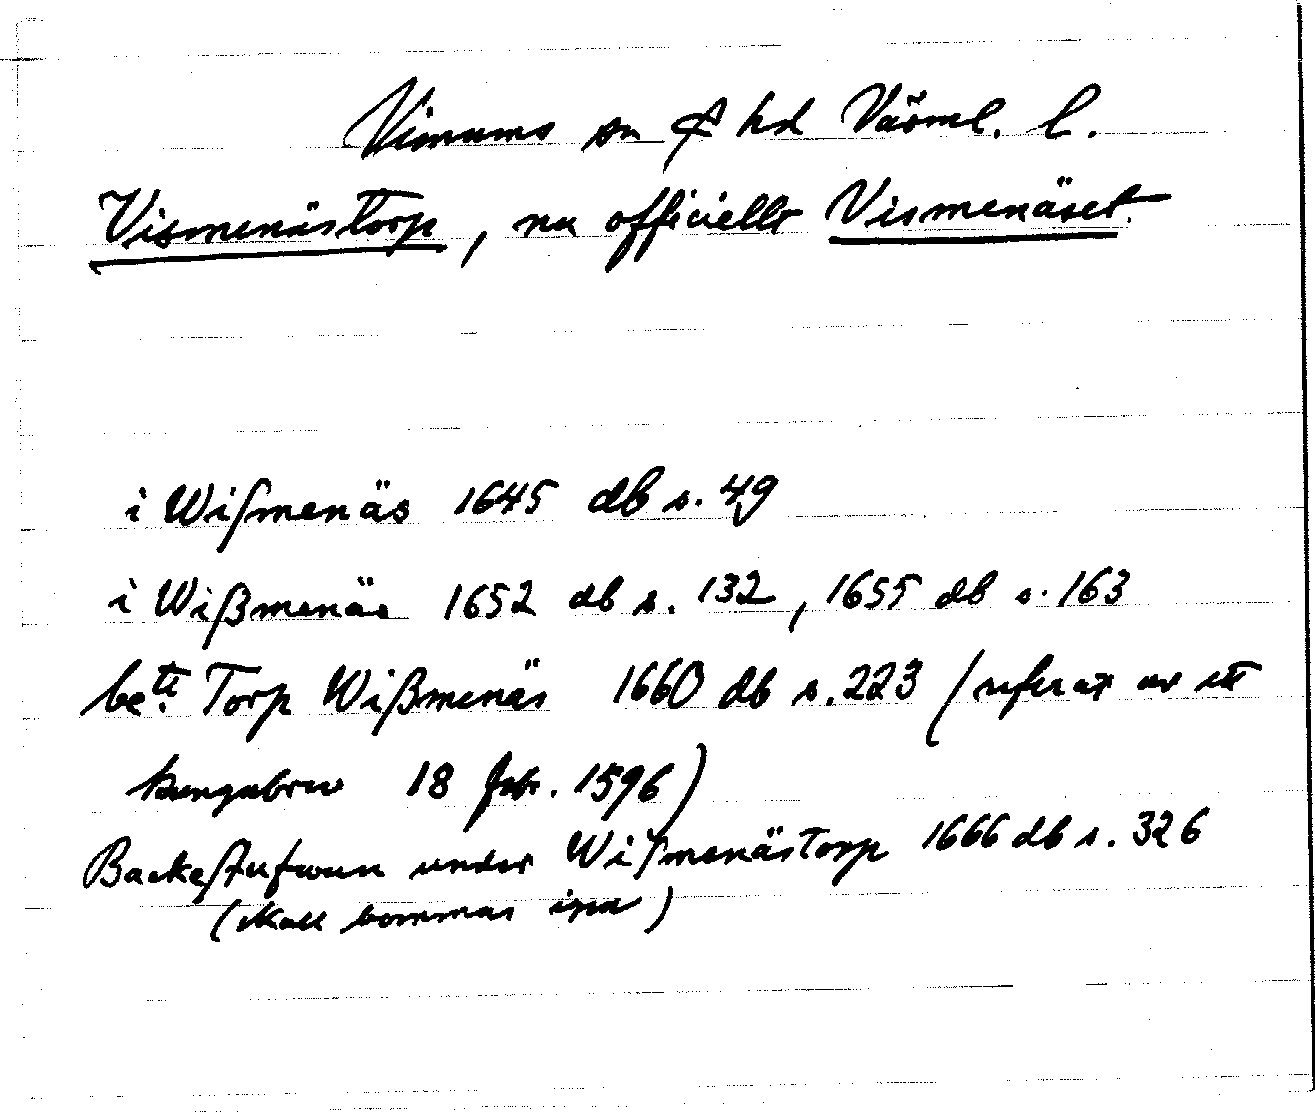 Visnums sn & hd Värml. l.
Vismenästorp, nu officiellt Vismenäset.
i Wißmenäs 1645 db s. 49
i Wißmenäs 1652 db s. 132, 1655 db s. 163
be:tt Torp Wißmenäs 1660 db s. 223 (referat av ett
kungabrev 18 febr. 1596)
Backestufwun under Wißmenästorp 1666 db s. 326
(skall kommas